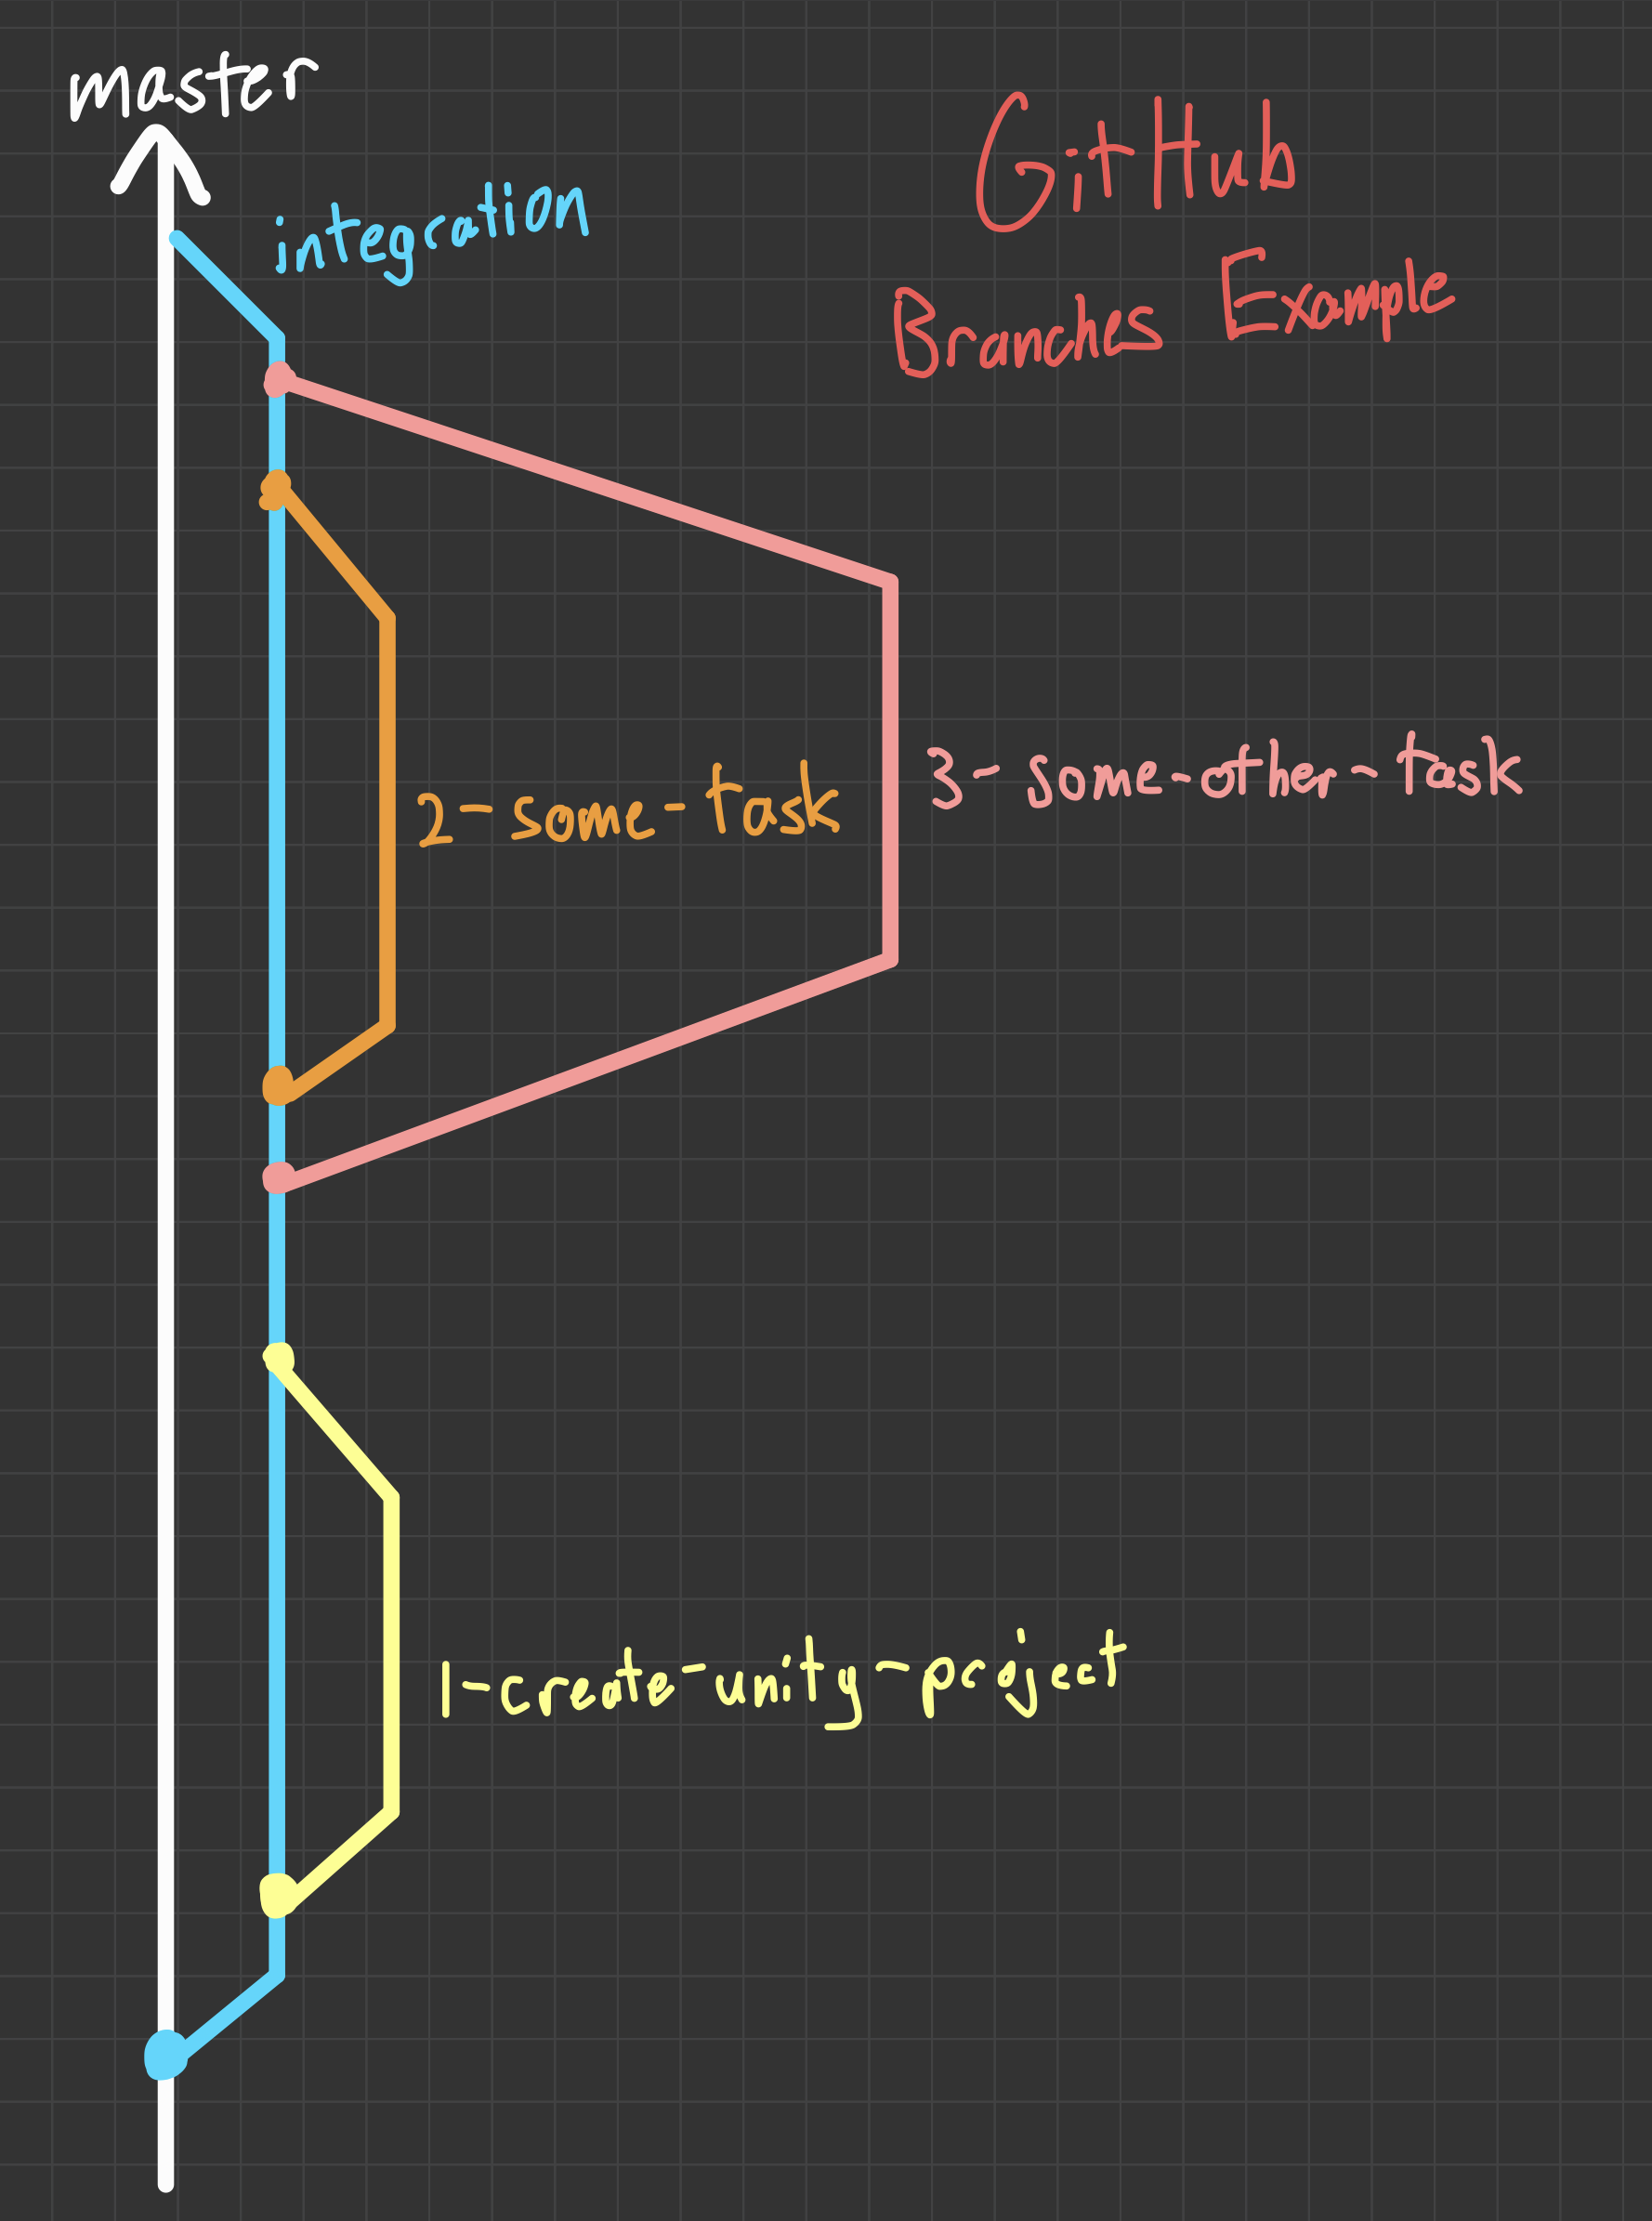 master
GitHub
Branches Example
integration
2-some-task
3-some-other-task
1-create-unity-project